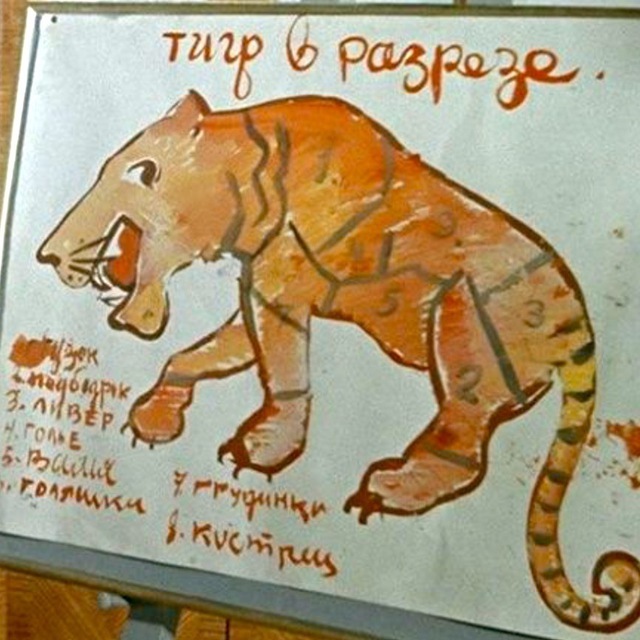 тигр в разрезе.
узок
2. подбедрок
3. ЛИВЕР
4. ГОЛЬЕ
5.
голяшки
7. грудинки
8. кострец
1
4
5
3
2